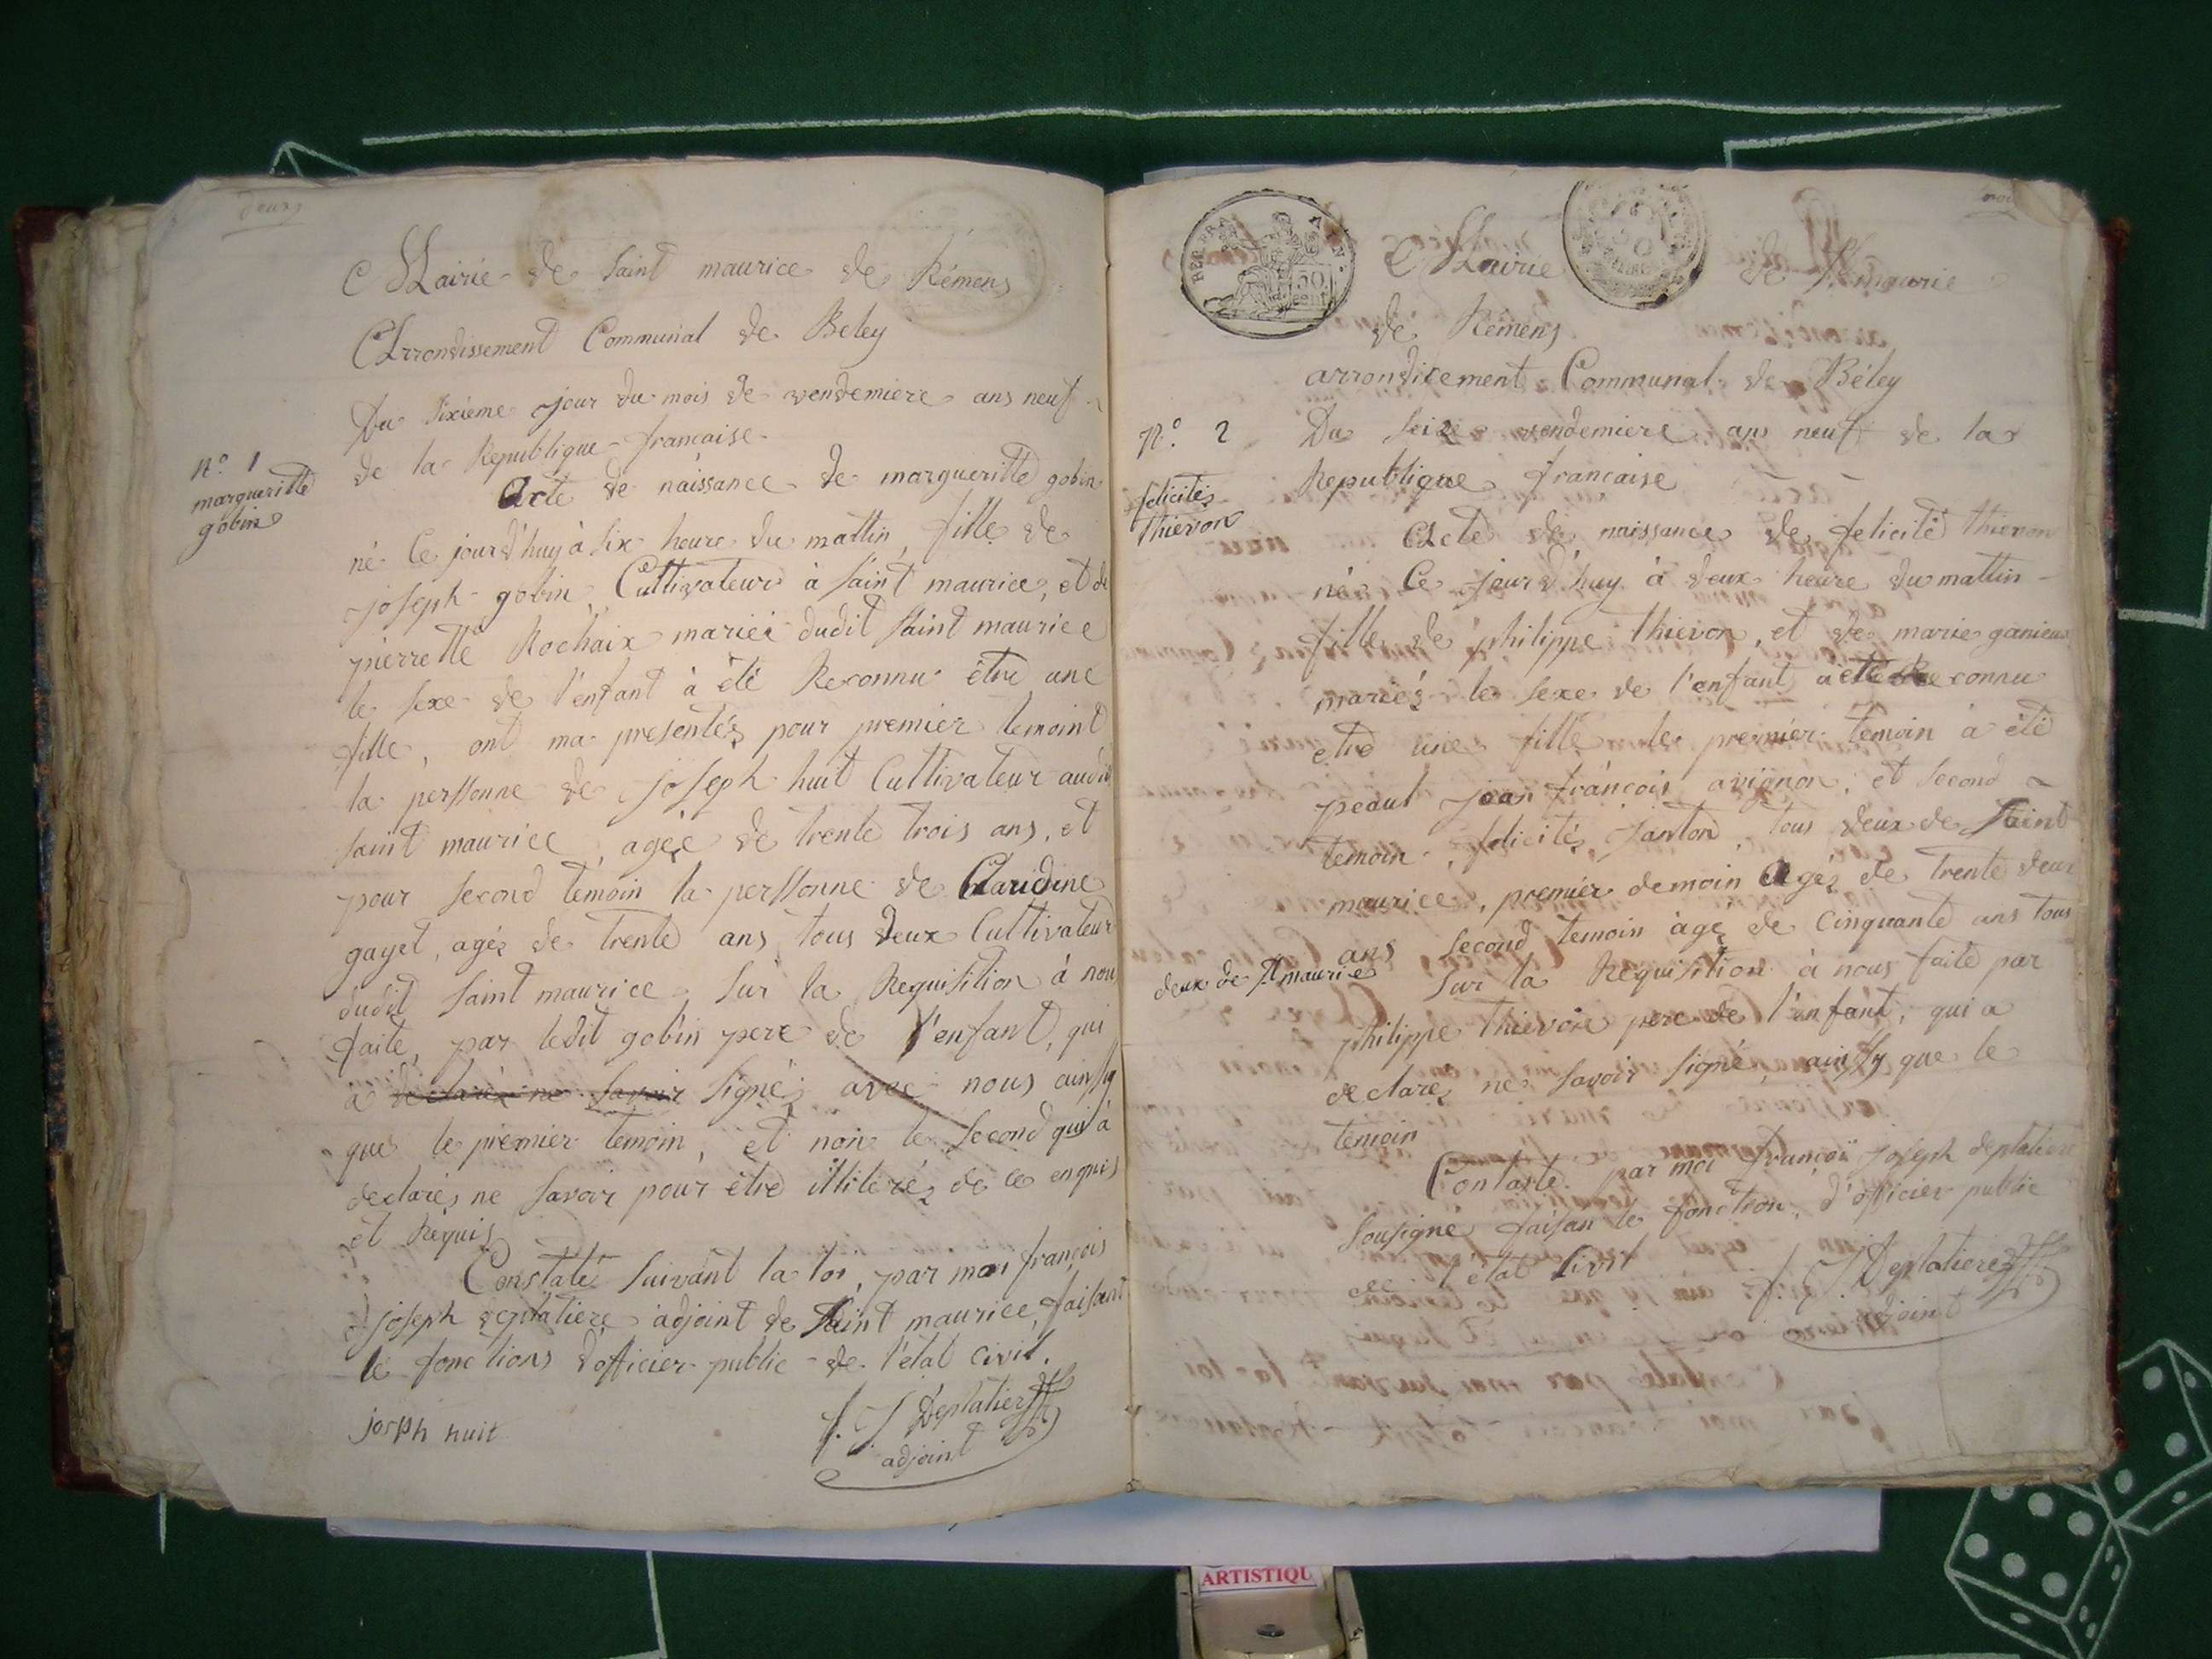 deux
Mairie de Saint maurice de Rémens
Arrondissement Communal de Beley
Du Sixieme jour du mois de vendemiere ans neuf
de la Republique française
n° 1
margueritte
gobin
Acte de naissance de margueritte gobin
né Ce jourd'huy à six heure du mattin, fille de
joseph gobin Cultivateur à Saint maurice, et de
pierrette Rochaix mariéé dudit Saint maurice
le sexe de l'enfant à été Reconnu être une
fille, ont ma presentés pour premier temoint
la perssonne de joseph huit Cultivateur audit
Saint maurice, agéé de trente trois ans, et
pour second temoin la perssonne de Claridine
gayet, agés de trente ans tous deux Cultivateur
dudit Saint maurice sur la Requisition à nou
faite, par ledit gobin pere de l'enfant, qui
à declarés ne savoir signés avec nous ainsy
que le premier temoin, et non le second qui à
declarés ne savoir pour être illiterés de ce enquis
et Requis
Constaté suivant la loi, par moi françois
joseph deplatiere adjoint de Saint maurice, faisant
le fonctions d'officier public de l'état civil.
josph huit
f. J Deplatiere
adjoint
Mairie de St. maurie
de Rémens
arrondicement Communal de Béley
N° 2
Du Seize vendemiere ans neuf de la
Republique francaise
felicités
thievon
Acte de naissance de felicité thievon
né Ce jourd'huy à deux heure du mattin
fille de philippe thievon, et de marie ganieu
mariés le sexe de l'enfant a été Reconnu
etre une fille le premier temoin à été
peaut jean françois avignon, et second
temoin felicités janton, tous deux de Saint
maurice, premier demoin Agés de trente deux
ans second temoin âgé de Cinquante ans tous
deux de St. maurie
Sur la Requisition à nous faite par
philippe thievon pere de l'enfant, qui a
declares ne savoir signé, ainsy que le
temoin
Contaste par moi françoi joseph deplatiere
sousigne faisan le fonction, d'officier public
de l'état sivil
f. J Deplatiere
adjoint
ARTISTIQU